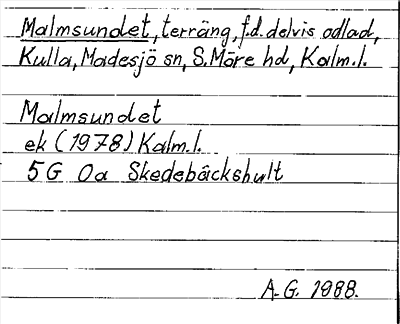 Malmsundet, terräng, f.d. delvis odlad,
Kulla, Madesjö sn, S. Möre hd, Kalm.l.
Malmsundet
ek (1978) Kalm.l.
5 G 0a Skedebäckshult
A.G. 1988.